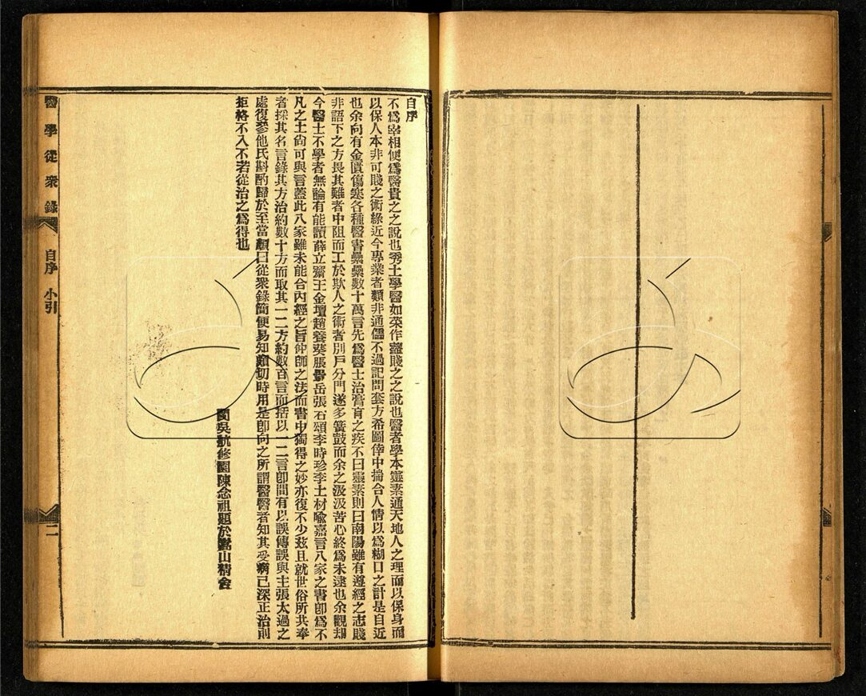 自序
不爲宰相便爲醫貴之之說也秀士學醫如菜作虀賤之之說也醫者學本靈素通天地人之理而以保身而
以保人本非可賤之術緣近今專業者類非通儒不過記問套方希圖倖中揣合人情以爲糊口之計是自近
也余向有金匱傷寒各種醫書纍纍數十萬言先爲醫士治膏肓之疾不曰靈素則曰南陽雖有遵經之志賤
非語下之方畏其難者中阻而工於欺人之術者別戶分門遂多簧鼓而余之汲汲苦心終爲未逮也余觀却
今醫士不學者無論有能讀薛立齋王金壇趙養葵張景岳張石頑李時珍李士材喻嘉言八家之書卽爲不
凡之士尙可與言蓋此八家雖未能合內經之旨仲師之法而書中獨得之妙亦復不少茲且就世俗所共奉
者採其名言錄其方治約數十方而取其一二方約數百言而括以一二言卽間有以誤傳誤與主張太過之
處復參他氏斟酌歸於至當顏曰從衆錄簡便易知頗切時用是卽向之所謂醫醫者知其受病已深正治則
拒格不入不若從治之爲得也
閩吳航修園陳念祖題於嵩山精舍
醫學從衆錄 自序 小引 二